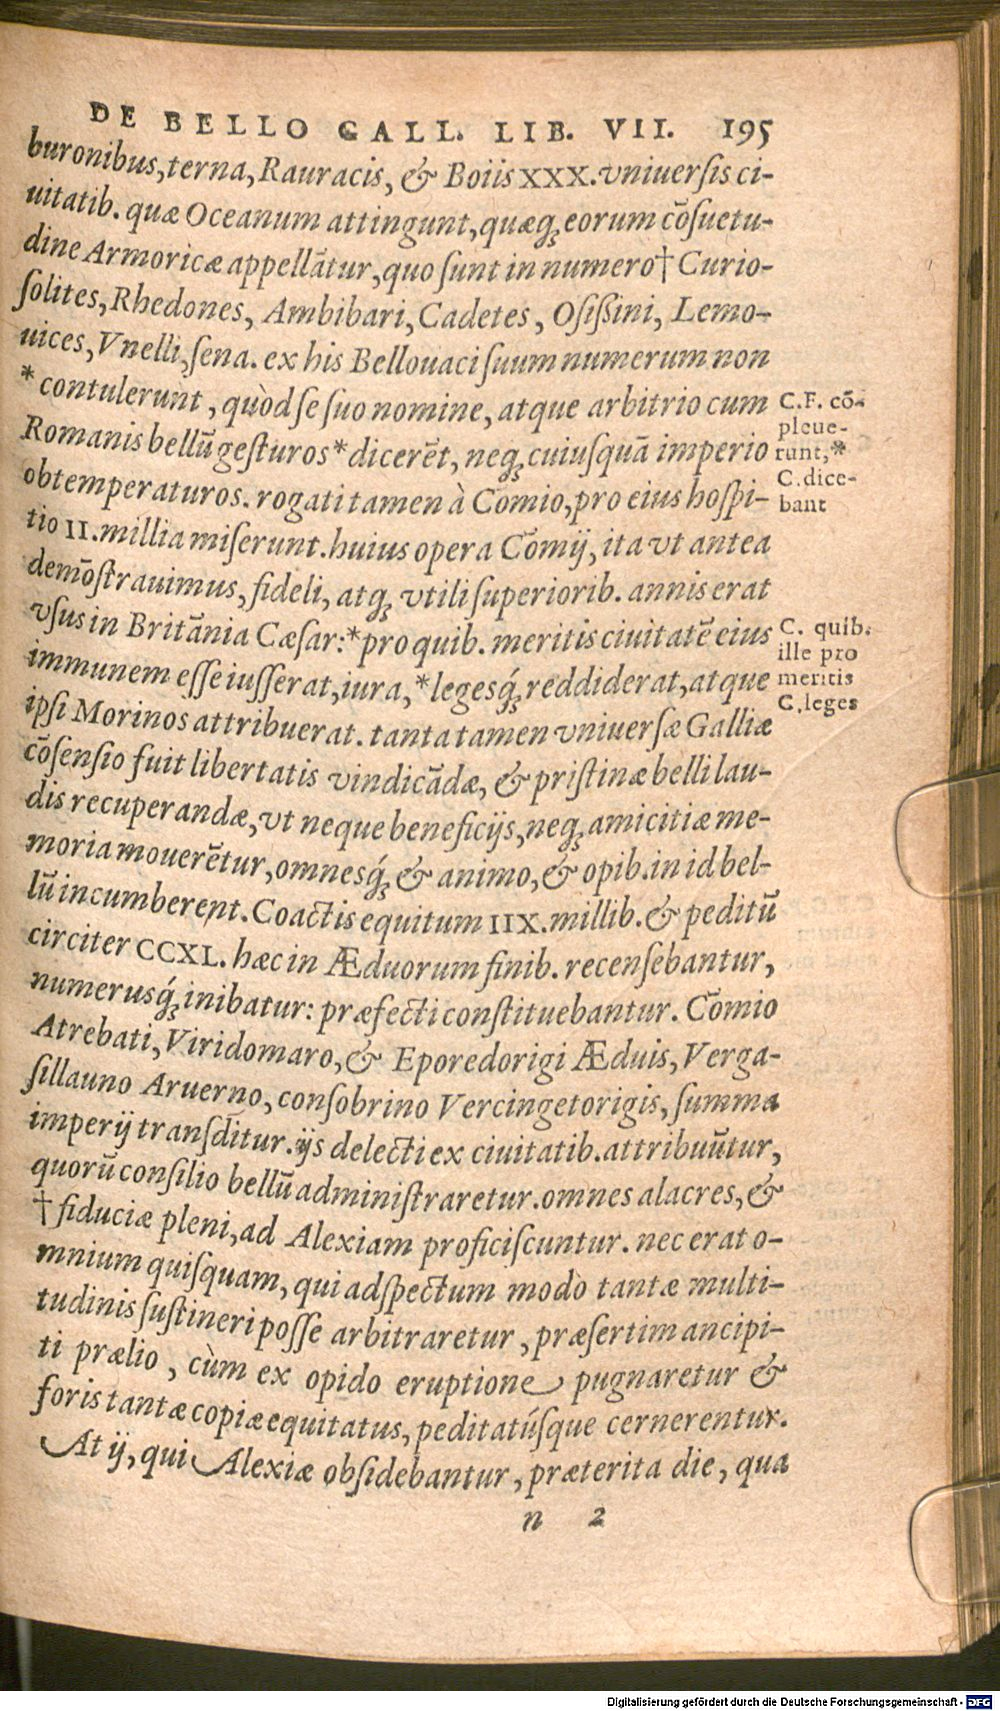 DE BELLO GALL. LIB. VII. 195
buronibus, terna, Rauracis, & Boiis XXX. vniuersis ci-
uitatib. quæ Oceanum attingunt, quæq; eorum cōsuetu-
dine Armoricæ appellātur, quo sunt in numero † Curio-
solites, Rhedones, Ambibari, Cadetes, Osißini, Lemo-
uices, Vnelli, sena. ex his Bellouaci suum numerum non
* contulerunt, quòd se suo nomine, atque arbitrio cum
Romanis bellū gesturos * dicerēt, neq; cuiusquā imperio
obtemperaturos. rogati tamen à Comio, pro eius hospi-
tio II. millia miserunt. huius opera Cōmij, ita vt antea
demōstrauimus, fideli, atq; vtili superiorib. annis erat
vsus in Britānia Cæsar: * pro quib. meritis ciuitatē eius
immunem esse iusserat, iura, * legesq́; reddiderat, atque
ipsi Morinos attribuerat. tanta tamen vniuersæ Galliæ
cōsensio fuit libertatis vindicādæ, & pristinæ belli lau-
dis recuperandæ, vt neque beneficijs, neq; amicitiæ me-
moria mouerētur, omnesq́; & animo, & opib. in id bel-
lū incumberent. Coactis equitum IIX. millib. & peditū
circiter CCXL. hæc in Æduorum finib. recensebantur,
numerusq́; inibatur: præfecti constituebantur. Cōmio
Atrebati, Viridomaro, & Eporedorigi Æduis, Verga-
sillauno Aruerno, consobrino Vercingetorigis, summa
imperij transditur. ijs delecti ex ciuitatib. attribuūtur,
quorū consilio bellū administraretur. omnes alacres, &
† fiduciæ pleni, ad Alexiam proficiscuntur. nec erat o-
mnium quisquam, qui adspectum modò tantæ multi-
tudinis sustineri posse arbitraretur, præsertim ancipi-
ti prælio, cùm ex opido eruptione pugnaretur &
foris tantæ copiæ equitatus, peditatúsque cernerentur.
At ij, qui Alexiæ obsidebantur, præterita die, qua
n 2
C.F. cō-
pleue-
runt, *
C. dice-
bant
C. quib.
ille pro
meritis
C. leges
Digitalisierung gefördert durch die Deutsche Forschungsgemeinschaft - DFG